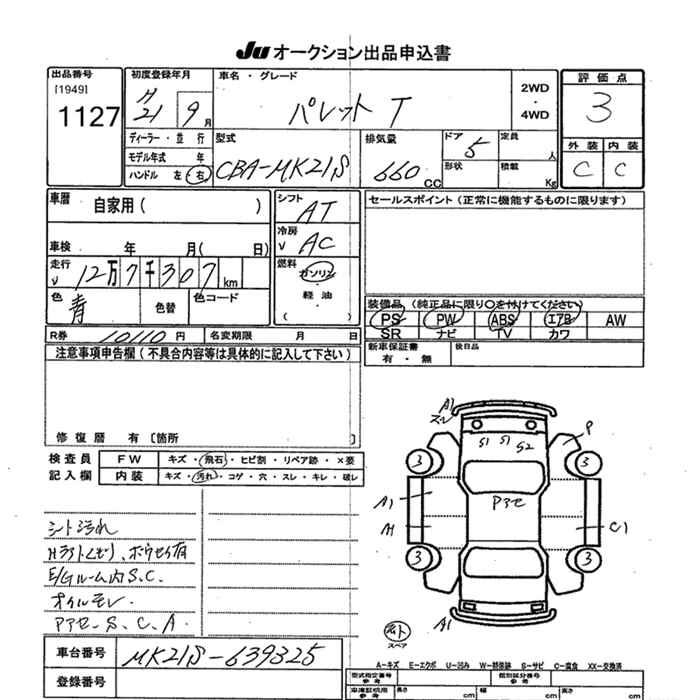 Ju オークション出品申込書
出品番号
[1949]
1127
初度登録年月
H
21 9月
車名・グレード
パレット T
2WD
・
4WD
評価点
3
外装 内装
C C
ディーラー・並行
モデル年式 年
ハンドル 左 右
型式
CBA-MK21S
排気量
660 CC
ドア 5
形状
定員 人
積載 Kg
車歴
自家用( )
車検 年 月( 日)
走行
12万7千307km
色
青
色替
色コード
シフト
AT
冷房
AC
燃料
ガソリン
・
軽油
( )
セールスポイント(正常に機能するものに限ります)
装備品(純正品に限り○を付けてください)
PS PW ABS エアB AW
SR ナビ TV カワ
R券 10110円 名変期限 月 日
新車保証書
有・無
後日品
注意事項申告欄(不具合内容等は具体的に記入して下さい)
修復歴 有〔箇所 〕
検査員
記入欄
FW キズ・飛石・ヒビ割・リペア跡・×要
内装 キズ・汚れ・コゲ・穴・スレ・キレ・破レ
シート汚れ
E/Gルーム内S.C.
オイルモレ.
A1
スレ
S1 S1 S2
P
3 3
A1
A1
Pアセ
C1
3 3
A1
スペア
車台番号 MK21S-639325
登録番号
A-キズ E-エクボ U-凹み W-補修跡 S-サビ C-腐食 XX-交換済
型式指定番号
参考
類別区分番号
参考
車庫証明用
参考
長さ cm 幅 cm 高さ cm